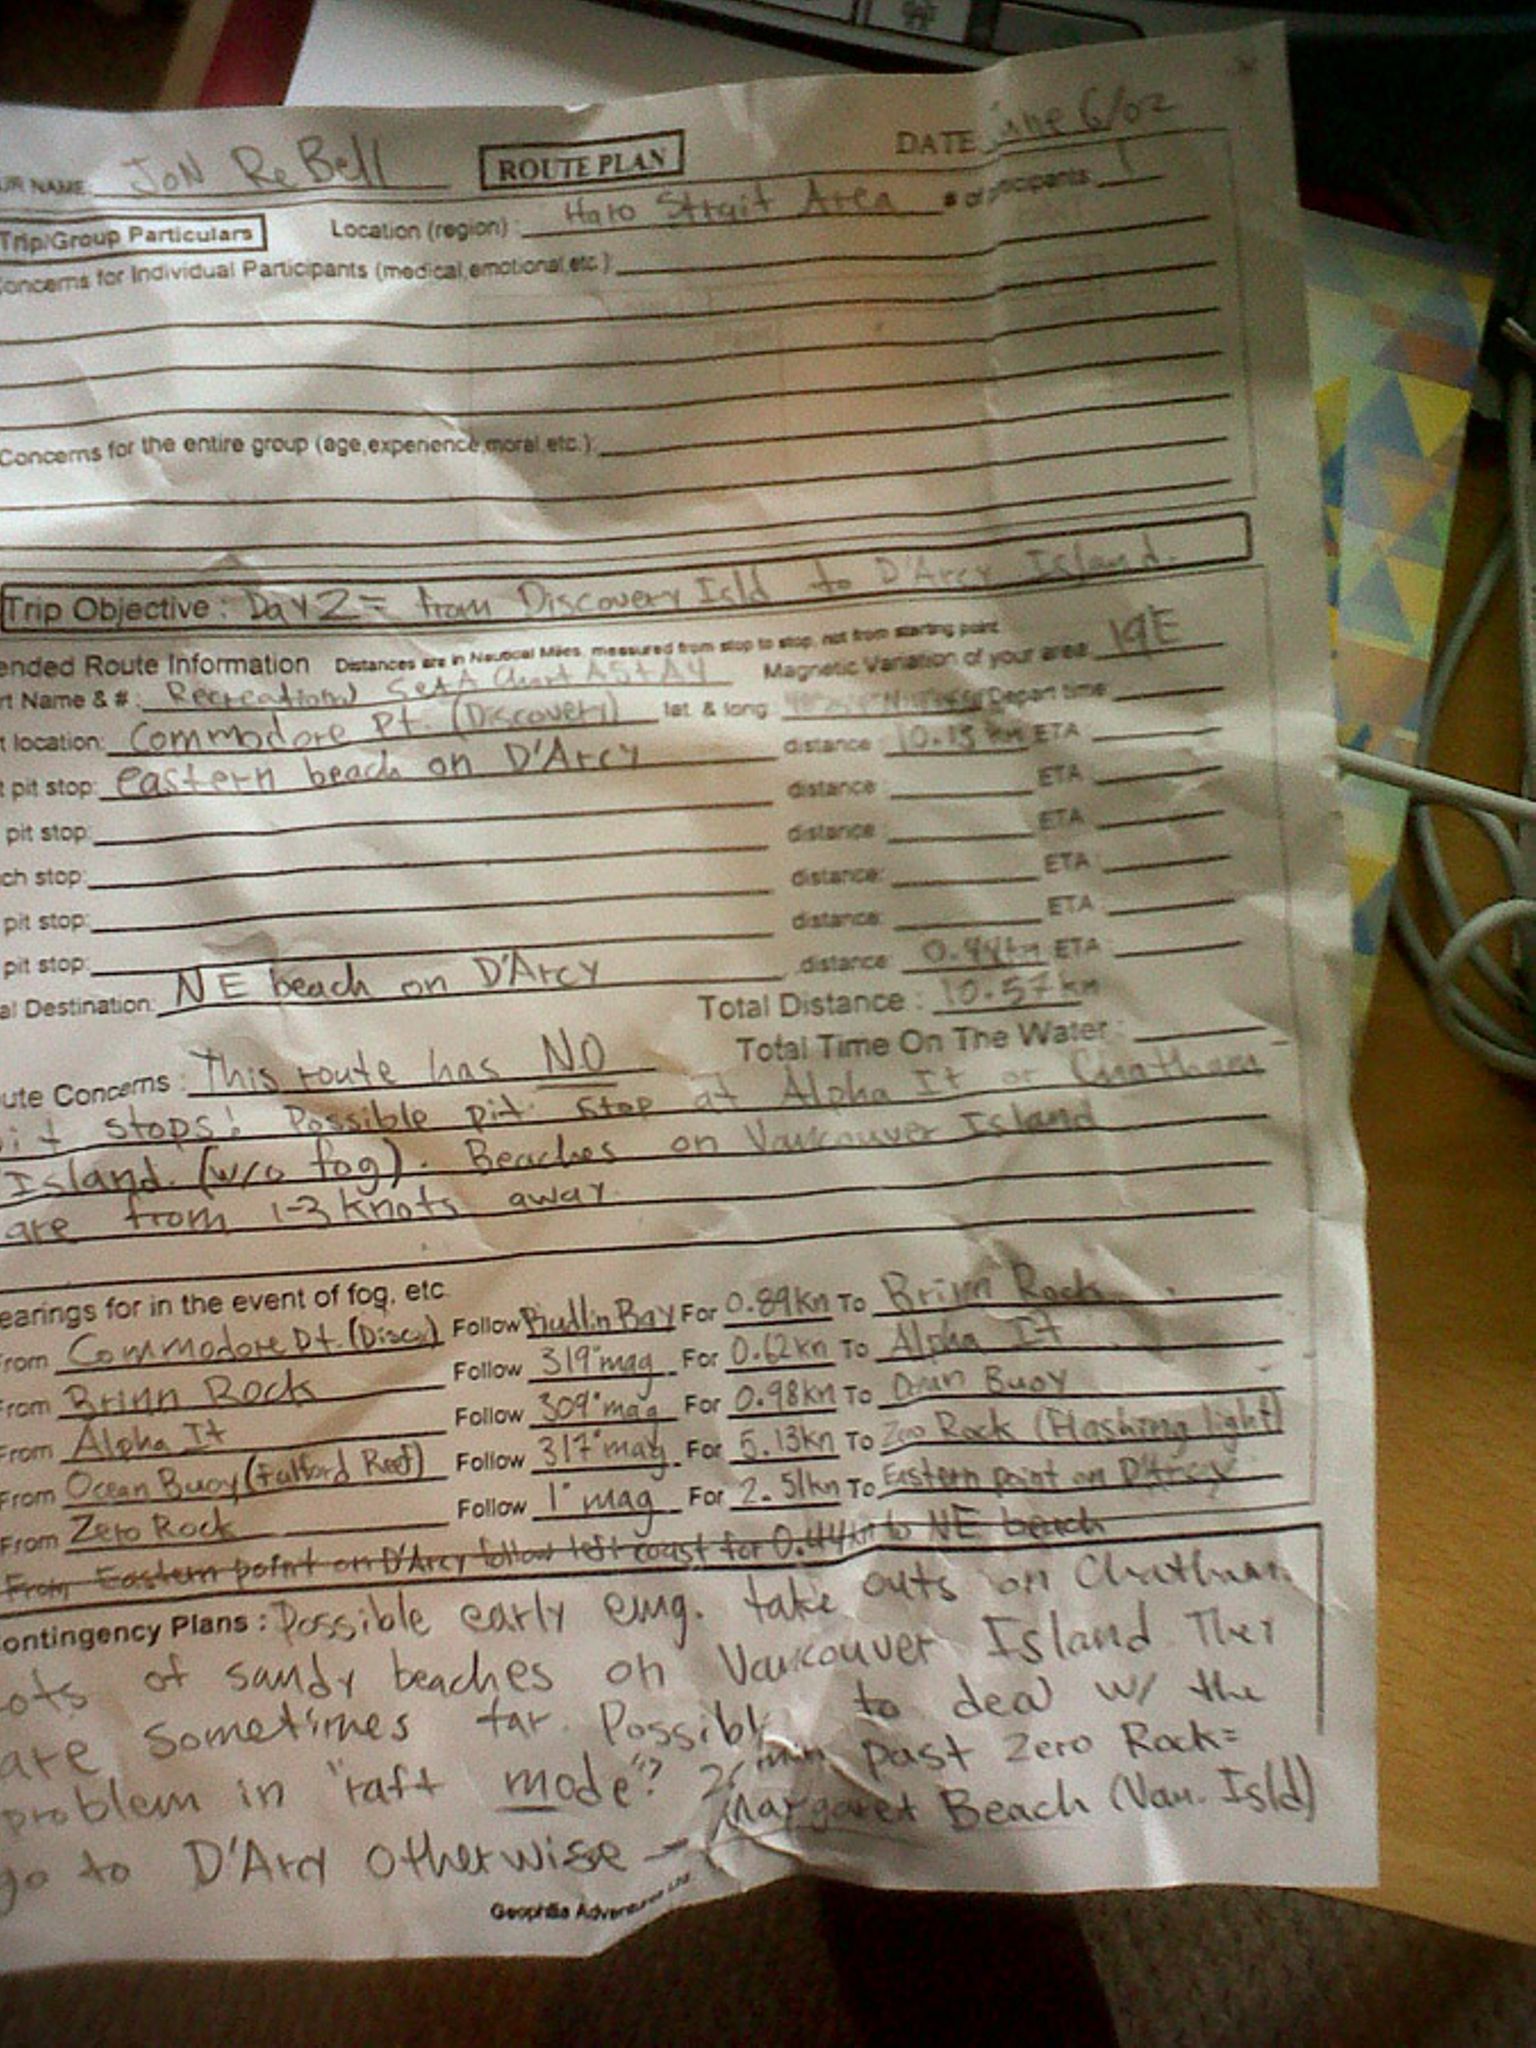 UR NAME: JON ReBell ROUTE PLAN DATE June 6/02
Trip/Group Particulars Location (region): Haro Strait Area # of participants: 1
oncerns for Individual Participants (medical,emotional,etc.):
Concerns for the entire group (age,experience,moral,etc.):
Trip Objective: Day 2 = from Discovery Isld to D'Arcy Island.
ended Route Information Distances are in Nautical Miles, measured from stop to stop, not from starting point
rt Name & #: Recreational Set A Chart A5+A4 Magnetic Variation of your area: 19E
t location: Commodore Pt. (Discovery) lat. & long: Depart time:
t pit stop: eastern beach on D'Arcy distance: 10.13 kn ETA
pit stop: distance: ETA:
ch stop: distance: ETA:
pit stop: distance: ETA:
pit stop: distance: ETA:
al Destination: NE beach on D'Arcy distance: 0.44kn ETA:
Total Distance: 10.57kn
Total Time On The Water:
ute Concerns: This route has NO
it stops! Possible pit stop at Alpha It or Chatham
Island. (w/o fog). Beaches on Vancouver Island
are from 1-3 knots away.
earings for in the event of fog, etc
rom Commodore Pt. (Disc.) Follow Rudlin Bay For 0.89kn To Brinn Rock
From Brinn Rock Follow 319° mag For 0.62kn To Alpha It
From Alpha It Follow 309° mag For 0.98kn To Ocean Buoy
From Ocean Buoy (Fulford Reef) Follow 317° mag For 5.13kn To Zero Rock (Flashing light)
From Zero Rock Follow 1° mag For 2.51kn To Eastern point on D'Arcy
From Eastern point on D'Arcy follow left coast for 0.44kn to NE beach
ontingency Plans: Possible early emg. take outs on Chatham
ots of sandy beaches on Vancouver Island They
are sometimes far. Possibly to deal w/ the
problem in "raft mode"? min past Zero Rock=
go to D'Arcy otherwise - Margaret Beach (Van. Isld)
Geophilia Adventures Ltd.